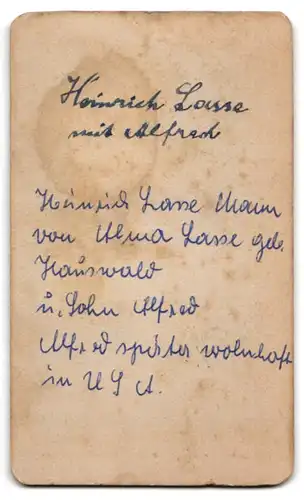 Heinrich Lasse
mit Alfred
Heinrich Lasse Mann
von Alma Lasse geb.
Hauswald
u. Sohn Alfred
Alfred später wohnhaft
in USA.